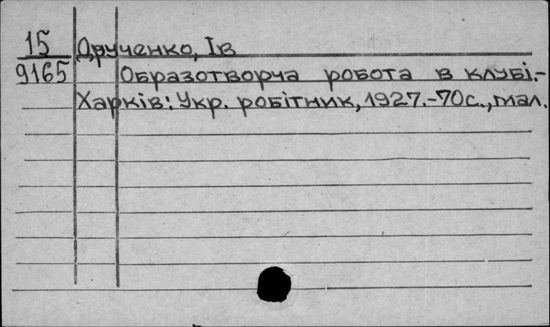 15
9165
Друченко, Ів
Образотворча робота в клубі.-
Харків: Укр. робітник, 1927.-70с., мал.